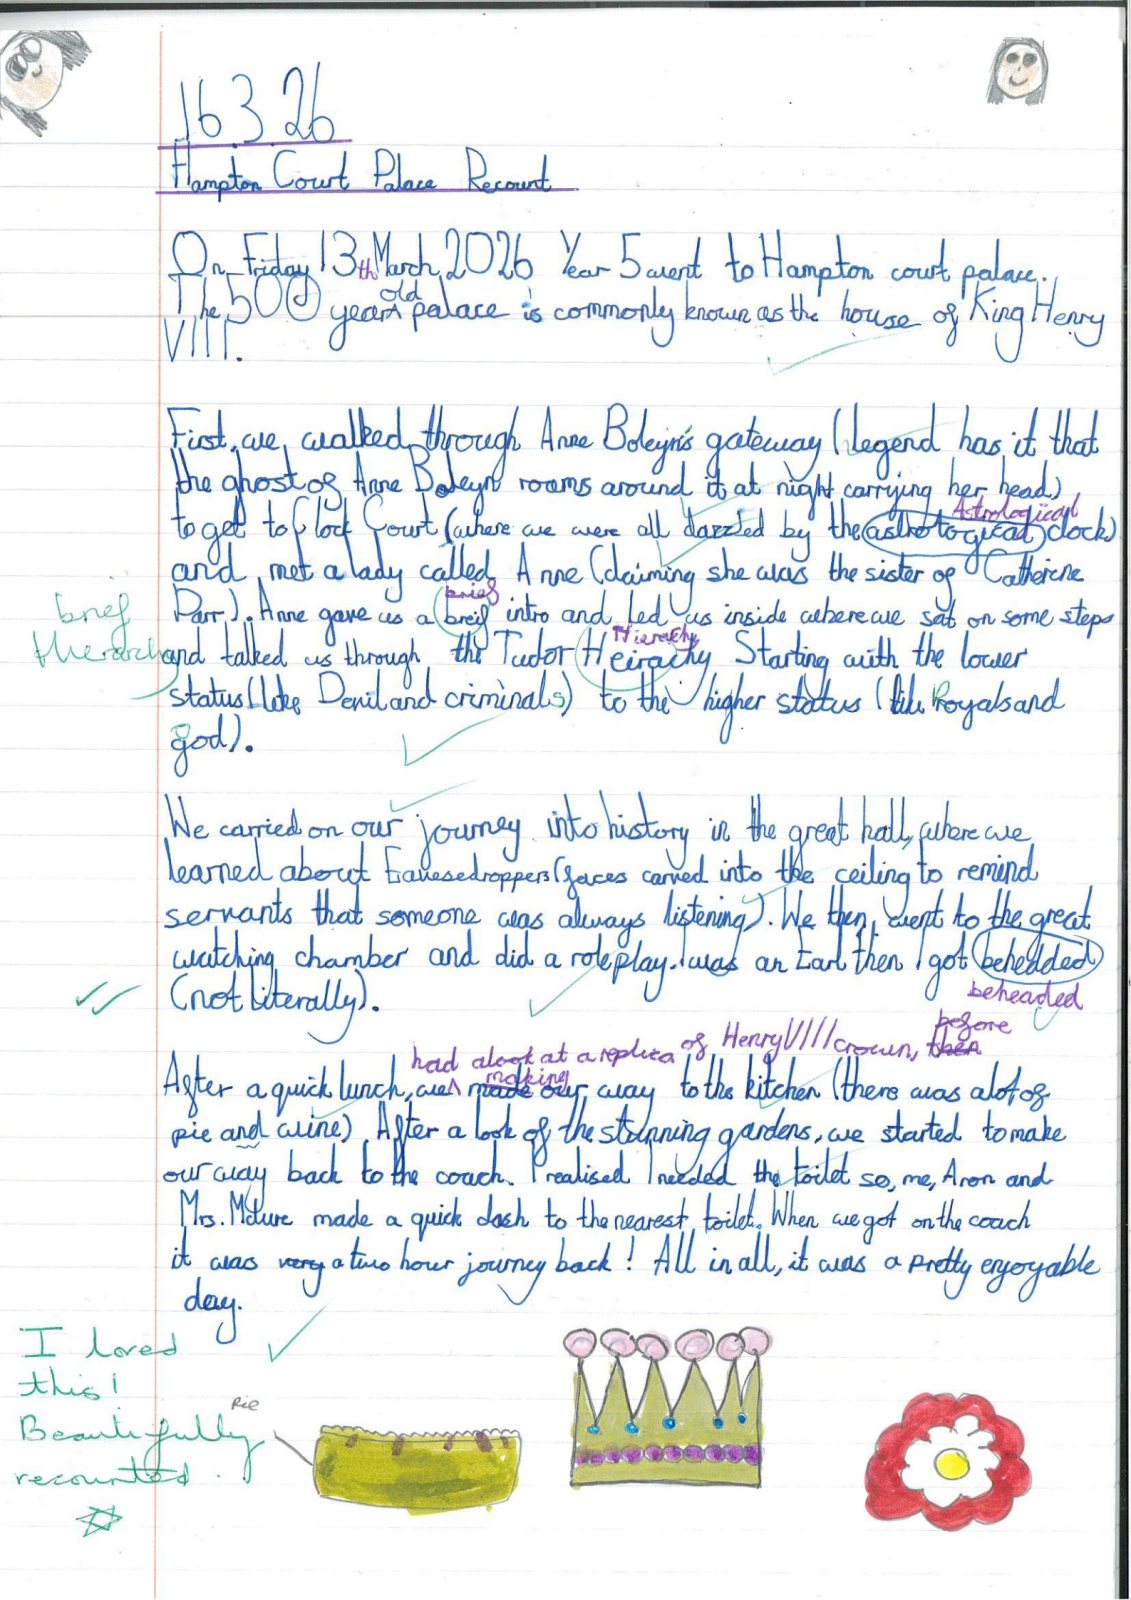 16.3.26
Hampton Court Palace Recount
On Friday 13th March, 2026 Year 5 went to Hampton court palace.
The 500 year old palace is commonly known as the house of King Henry
VIII.
First, we walked through Anne Boleyn's gateway (legend has it that
the ghost of Anne Boleyn rooms around it at night carrying her head)
Astrological
to get to Clock Court (where we were all dazzled by the astrotogical clock)
and met a lady called Anne (claiming she was the sister of Catherine
brief
brief
Parr). Anne gave us a breif intro and led us inside where we sat on some steps
Hierarchy
Hierachy
and talked us through the Tudor Heirachy Starting with the lower
status (like Devil and criminals) to the higher status (like Royals and
god).
We carried on our journey into history in the great hall, where we
learned about Eavesedroppers (faces carved into the ceiling to remind
servants that someone was always listening). We then, went to the great
watching chamber and did a roleplay. I was an Earl then I got behedded
(not literally).
beheaded
had a look at a replica of Henry VIII crown, then before
making
After a quick lunch, we made our way to the kitchen (there was alot of
pie and wine). After a look of the stunning gardens, we started to make
our way back to the coach. I realised I needed the toilet so, me, Aron and
Mrs. Mclure made a quick dash to the nearest toilet. When we got on the coach
it was very a two hour journey back! All in all, it was a pretty enjoyable
day.
I loved
this!
Beautifully
recounted.
Pie